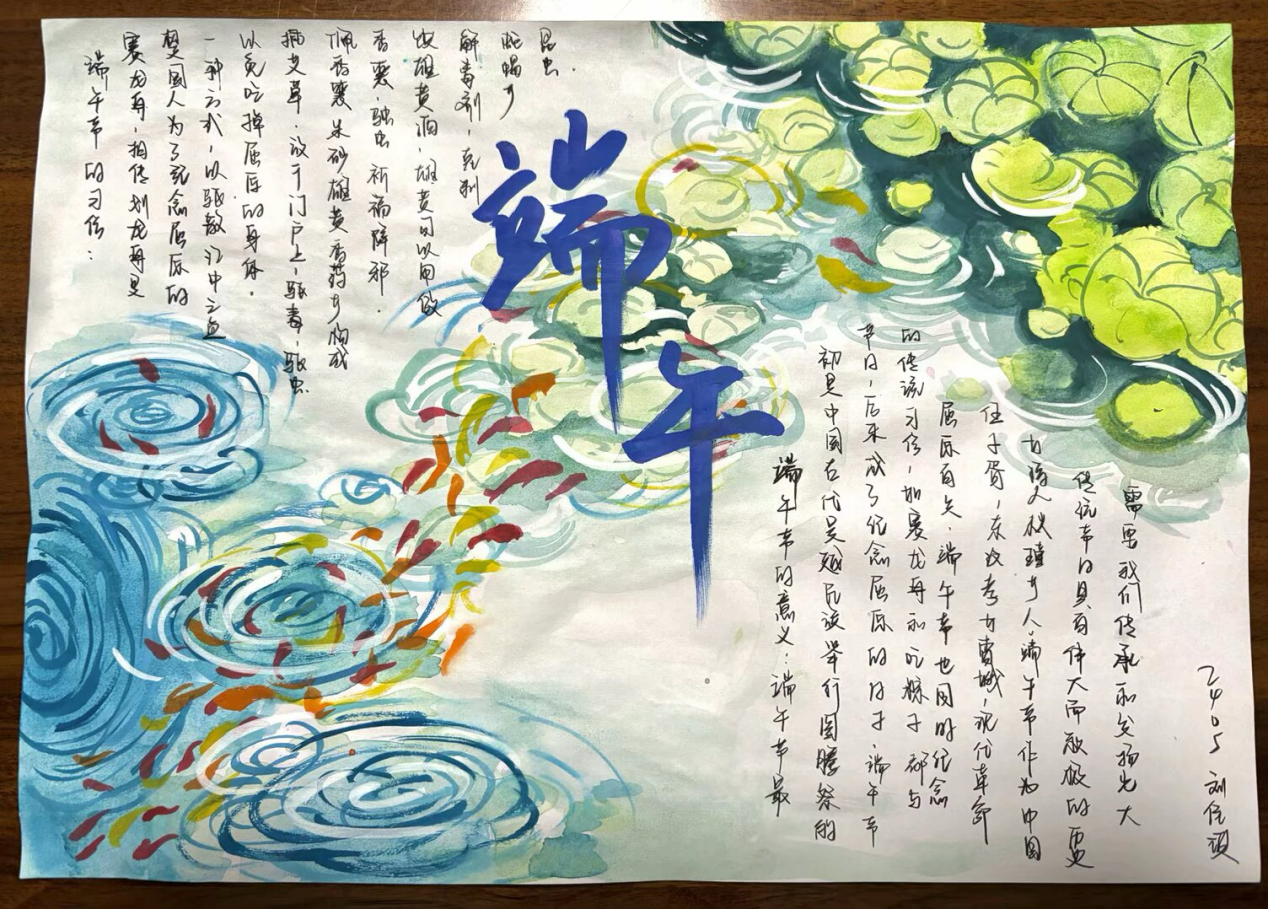 端午
端午节的习俗：
赛龙舟，相传划龙舟是
楚国人为了纪念屈原的
一种方式，以驱散江中之鱼
以免吃掉屈原的身体．
插艾草．放于门户上，驱毒，驱虫
佩香囊 朱砂雄黄香药等构成
香囊，驱虫 祈福降邪．
饮雄黄酒，雄黄可以用做
解毒剂，克制
蛇蝎等
昆虫．
端午节的意义：端午节最
初是中国古代吴越民族举行图腾祭的
节日，后来成了纪念屈原的日子，端午节
的传说习俗，如赛龙舟和吃粽子都与
屈原有关，端午节也因时纪念
伍子胥，东汉孝女曹娥，现代革命
女诗人秋瑾等人，端午节作为中国
传统节日具有伟大而积极的历史
需要我们传承和发扬光大
2405 刘佳